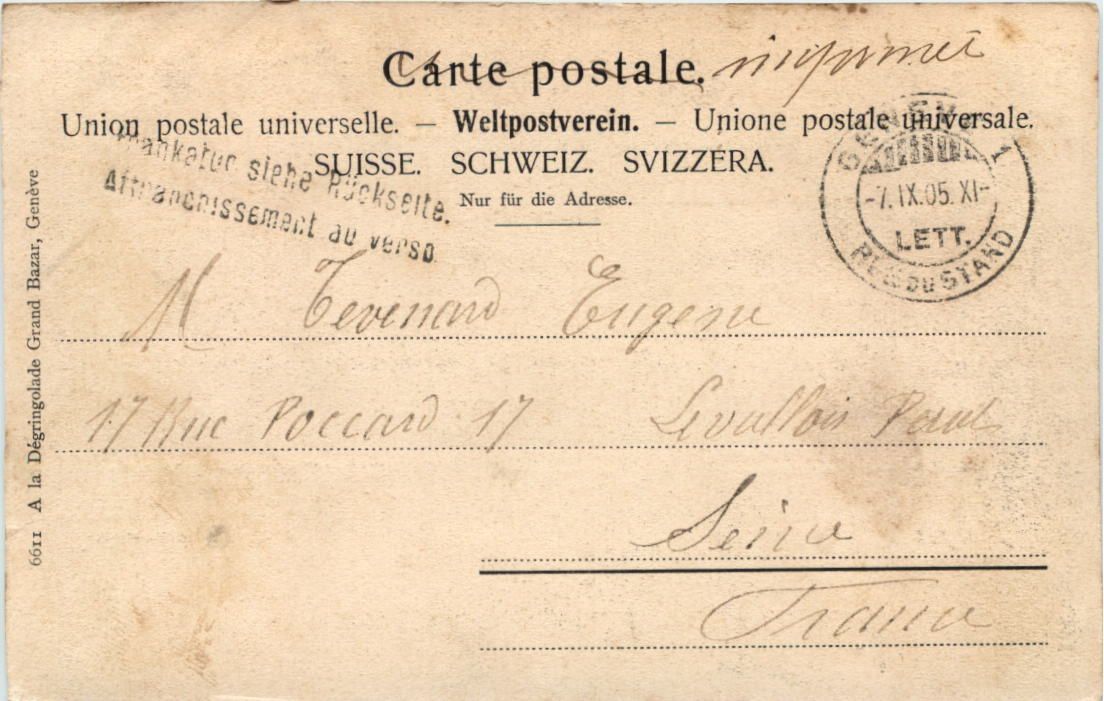 Carte postale. imprimé
Union postale universelle. — Weltpostverein. — Unione postale universale.
SUISSE. SCHWEIZ. SVIZZERA.
Nur für die Adresse.
Frankatur siehe Rückseite.
Affranchissement au verso
GENÈVE 1
-7.IX.05.XI-
LETT.
RUE DU STAND
M Tevenard Eugene
17 Rue Poccard 17 Levallois Perret
Seine
France
6611 A la Dégringolade Grand Bazar, Genève